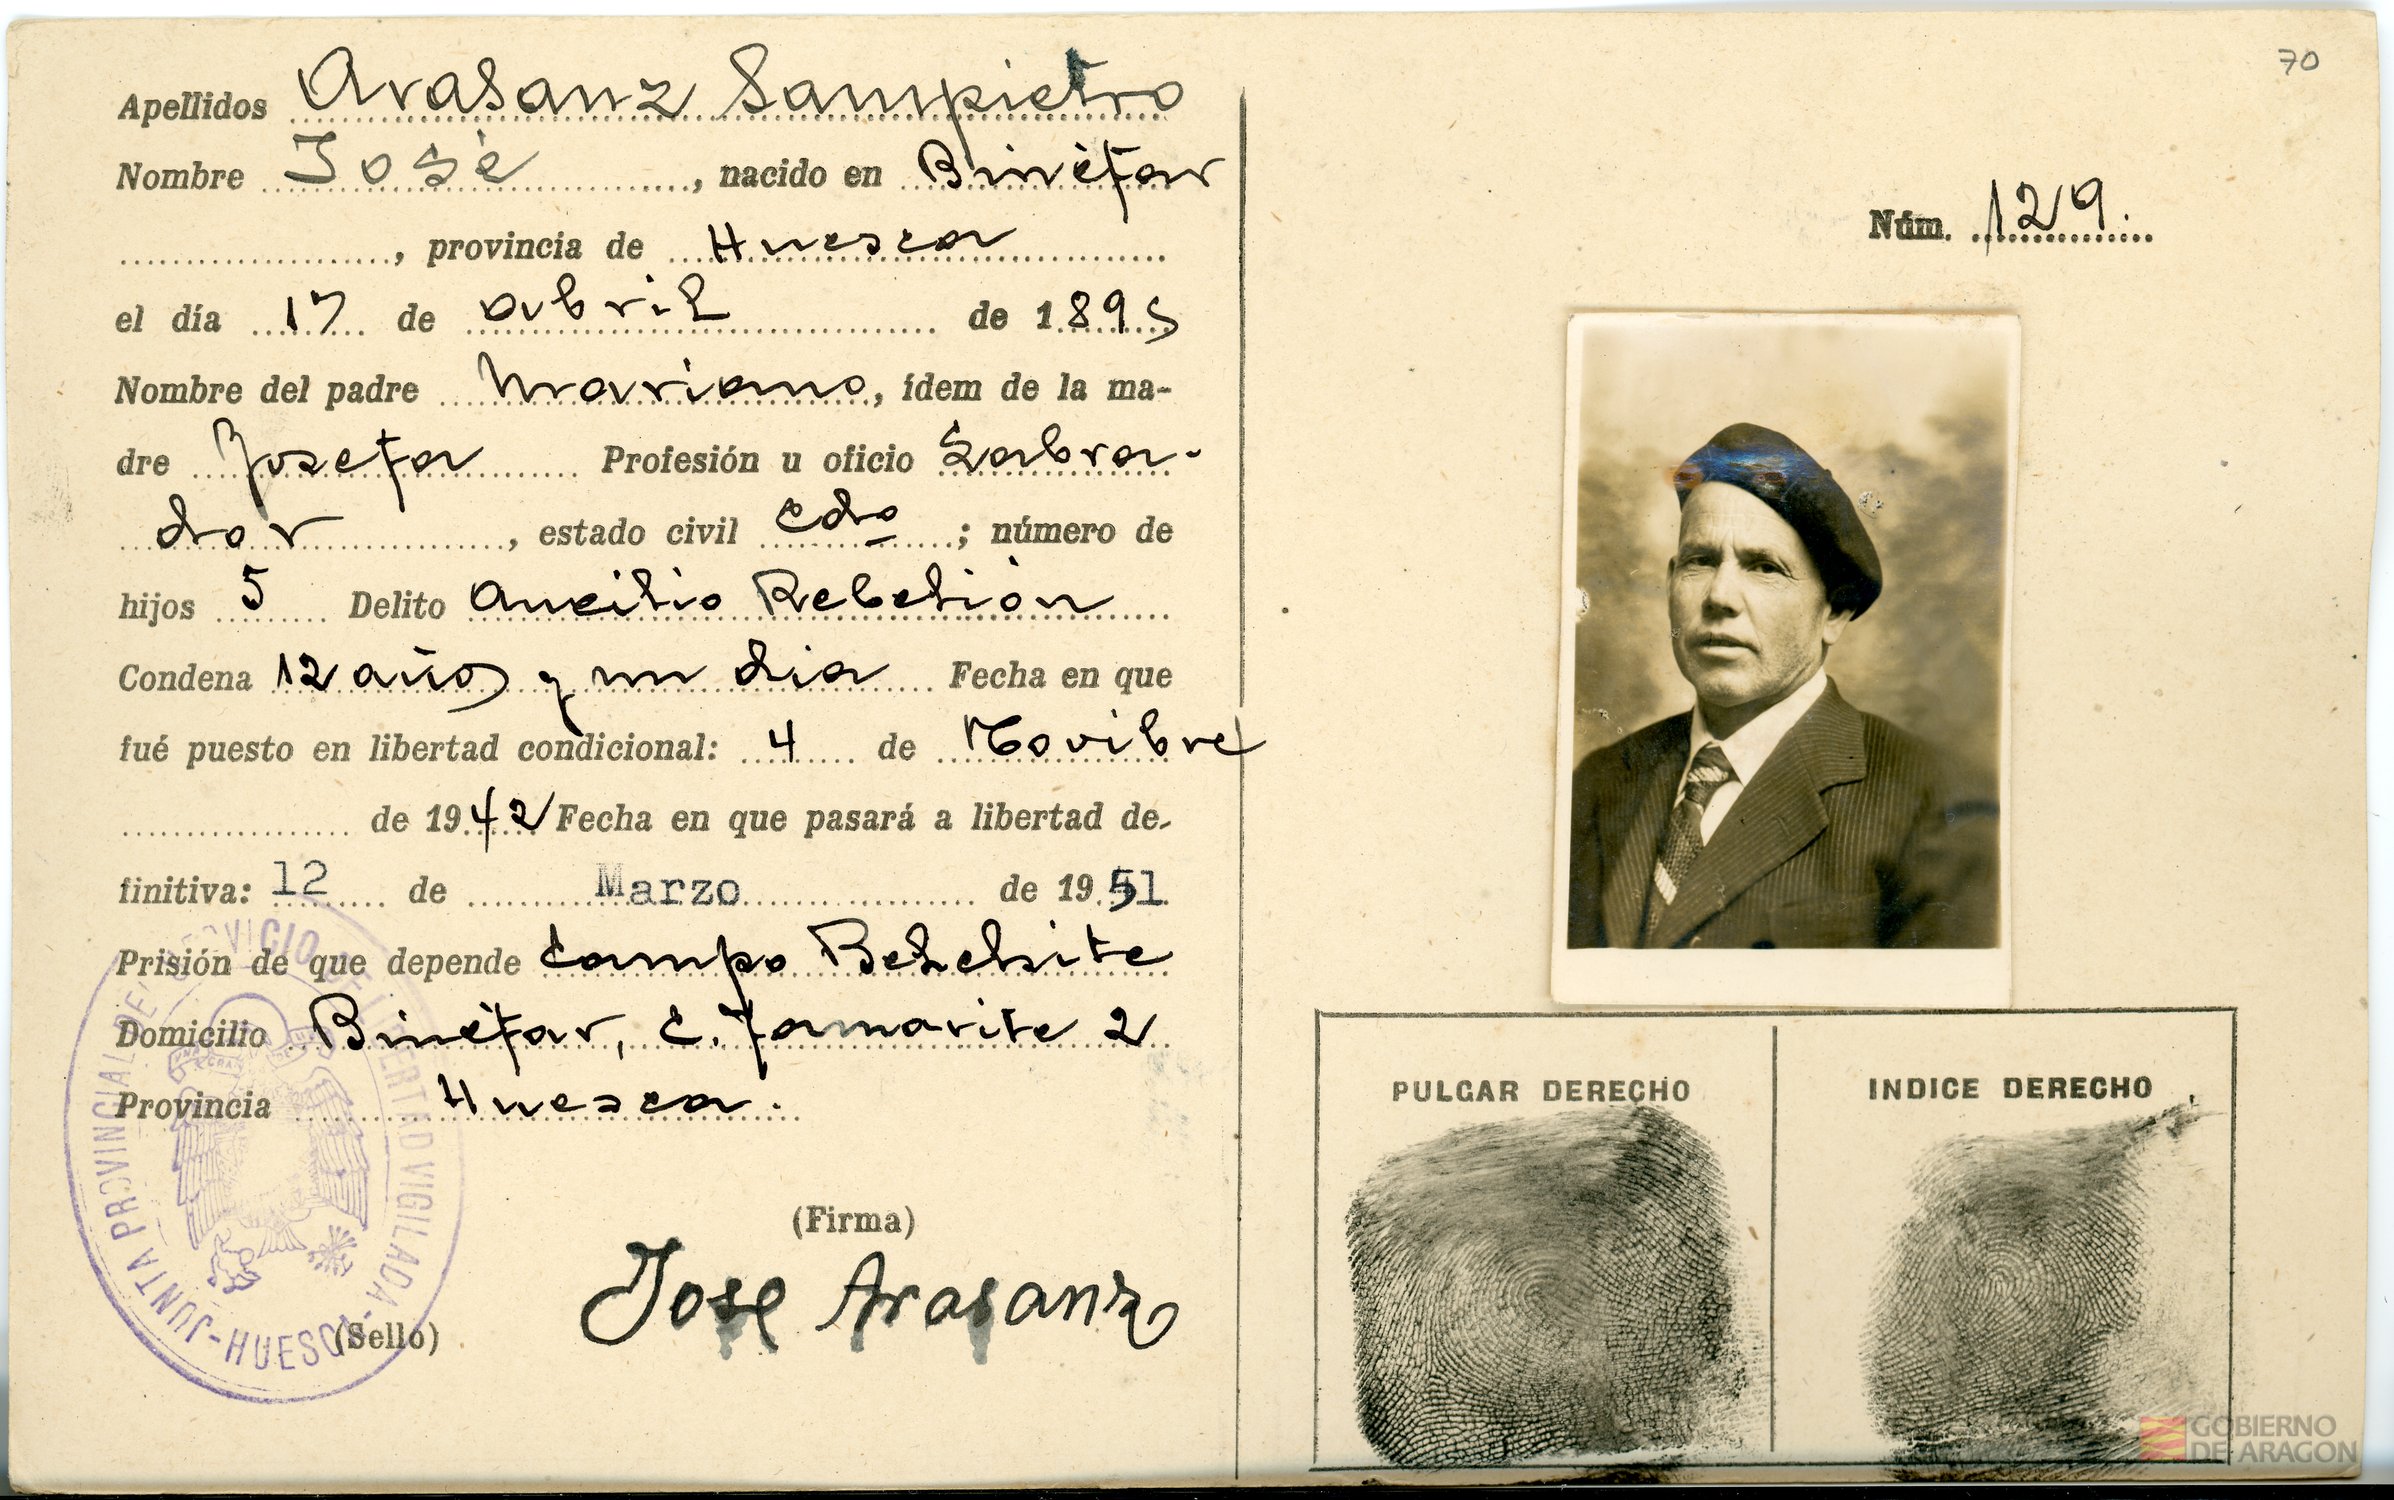 70
Apellidos Arasanz Sampietro
Nombre José, nacido en Binéfar
, provincia de Huesca
el día 17 de abril de 1895
Nombre del padre Mariano, ídem de la ma-
dre Josefa Profesión u oficio Labra-
dor, estado civil cdo; número de
hijos 5 Delito Auxilio Rebelión
Condena 12 años y un dia Fecha en que
fué puesto en libertad condicional: 4 de Novibre
de 1942 Fecha en que pasará a libertad de-
finitiva: 12 de Marzo de 1951
Prisión de que depende Campo Belchite
Domicilio Binéfar, C. Tamarite 2
Provincia Huesca.
(Firma)
Jose Arasanz
(Sello)
JUNTA PROVINCIAL DEL SERVICIO DE LIBERTAD VIGILADA - HUESCA
Núm. 129.
PULGAR DERECHO
INDICE DERECHO
GOBIERNO
DE ARAGON